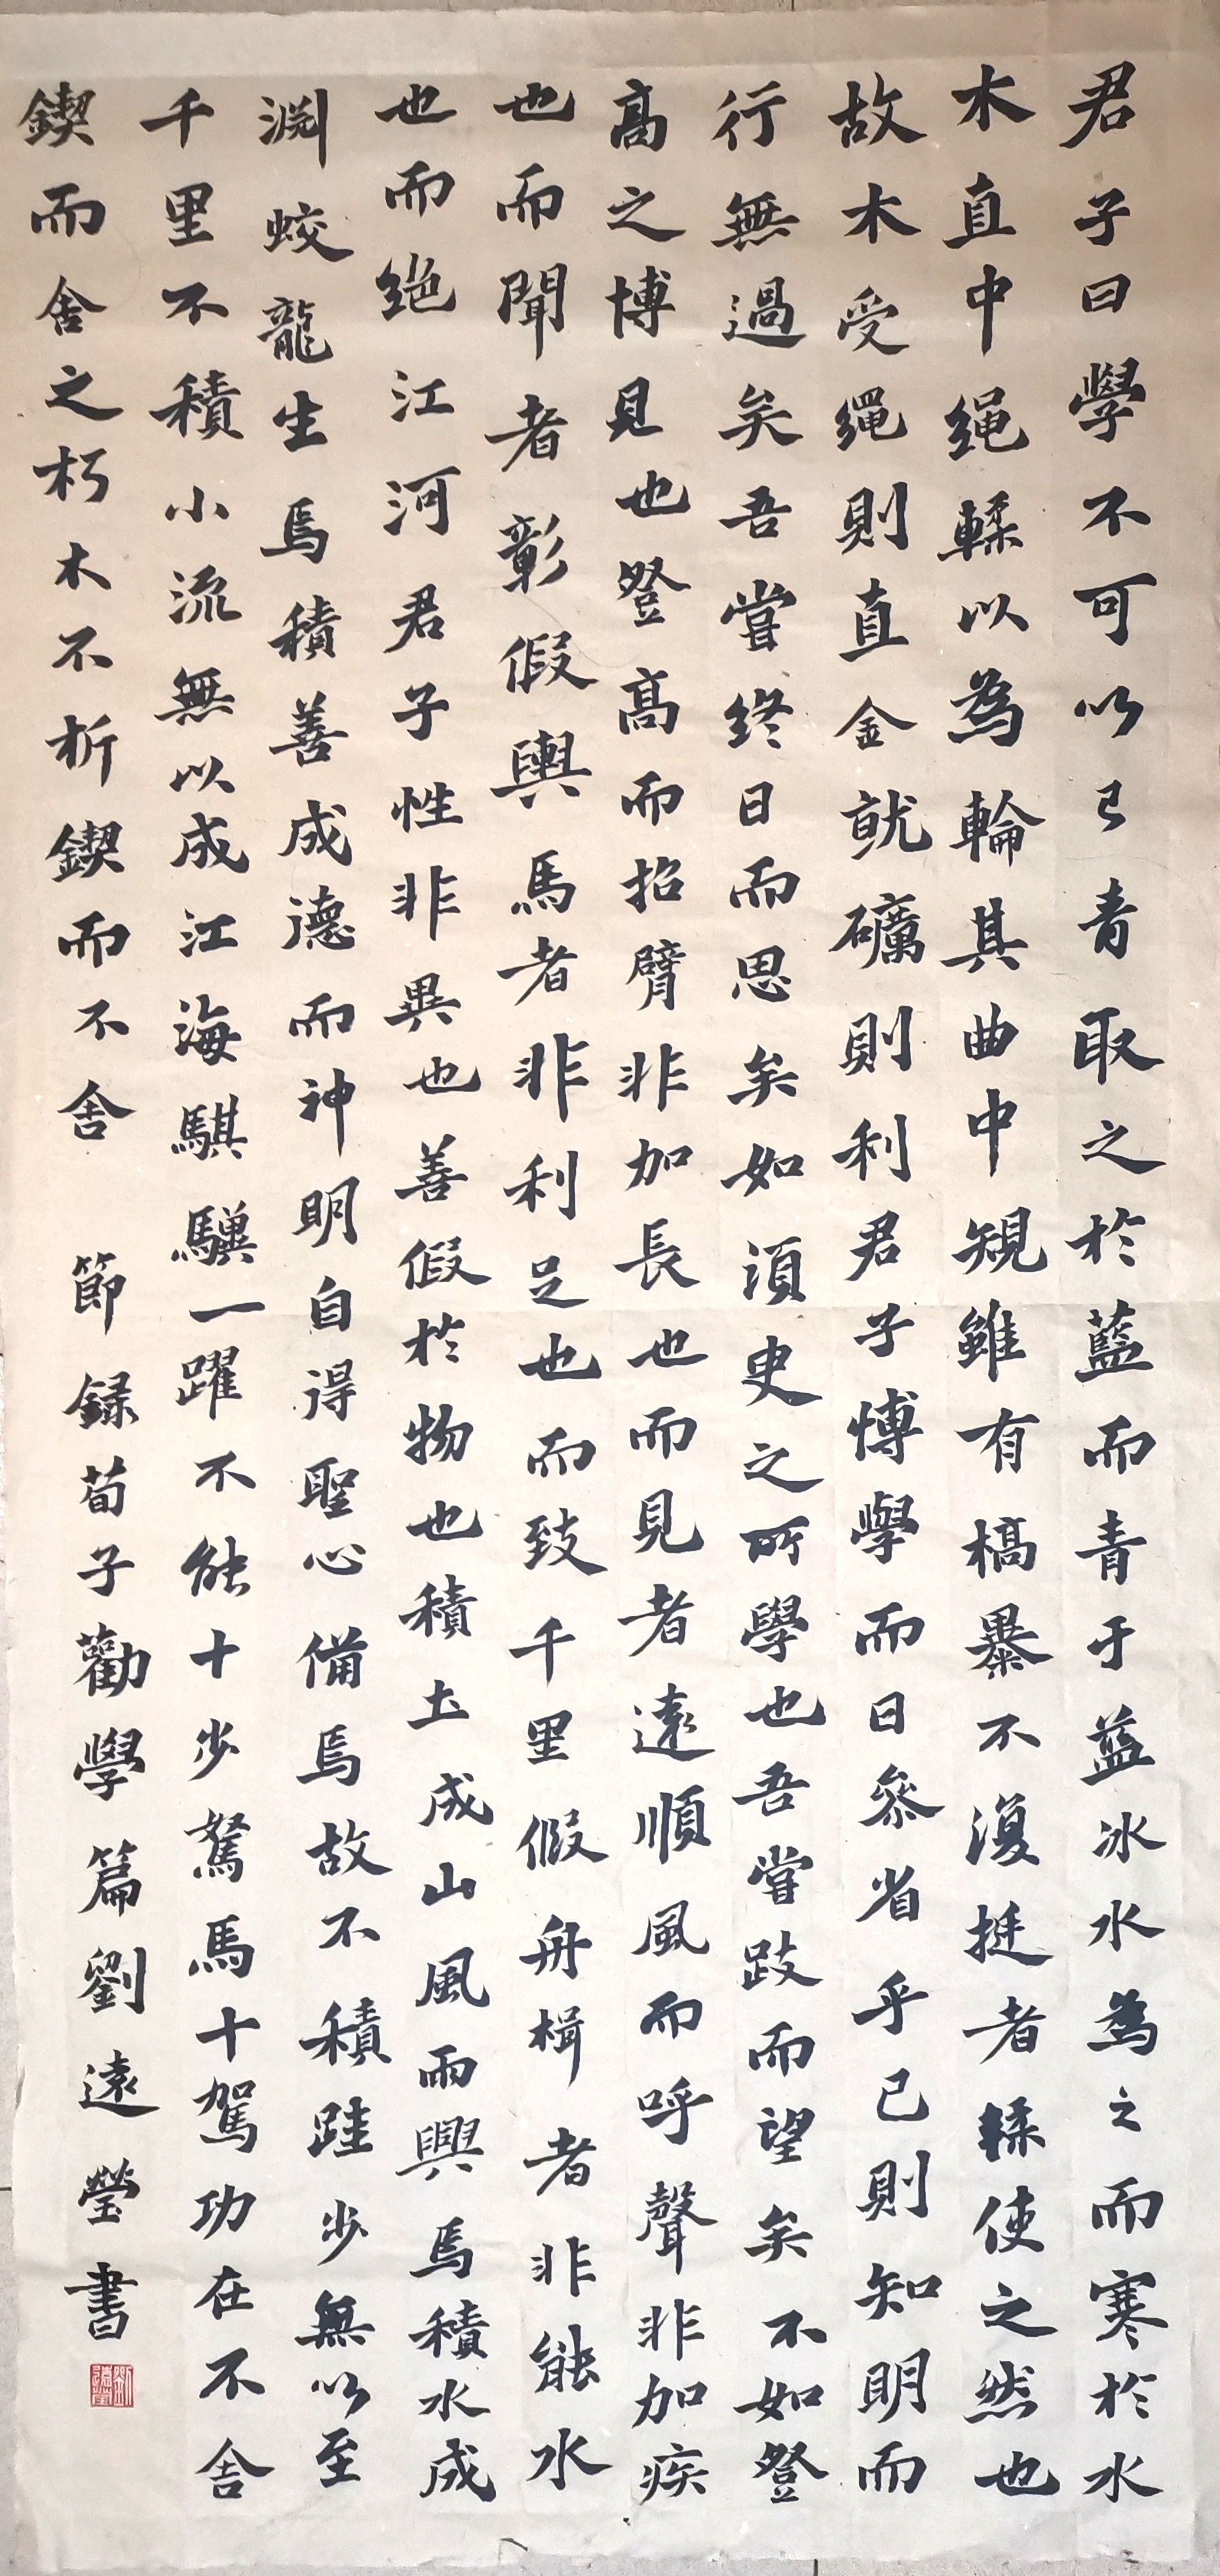 君子曰學不可以已青取之於藍而青于藍冰水為之而寒於水
木直中繩輮以為輪其曲中規雖有槁暴不復挺者輮使之然也
故木受繩則直金就礪則利君子博學而日參省乎己則知明而
行無過矣吾嘗終日而思矣如須臾之所學也吾嘗跂而望矣不如登
高之博見也登高而招臂非加長也而見者遠順風而呼聲非加疾
也而聞者彰假輿馬者非利足也而致千里假舟楫者非能水
也而絕江河君子性非異也善假於物也積土成山風雨興焉積水成
淵蛟龍生焉積善成德而神明自得聖心備焉故不積跬步無以至
千里不積小流無以成江海騏驥一躍不能十步駑馬十駕功在不舍
鍥而舍之朽木不折鍥而不舍 節録荀子勸學篇劉遠瑩書
劉遠瑩